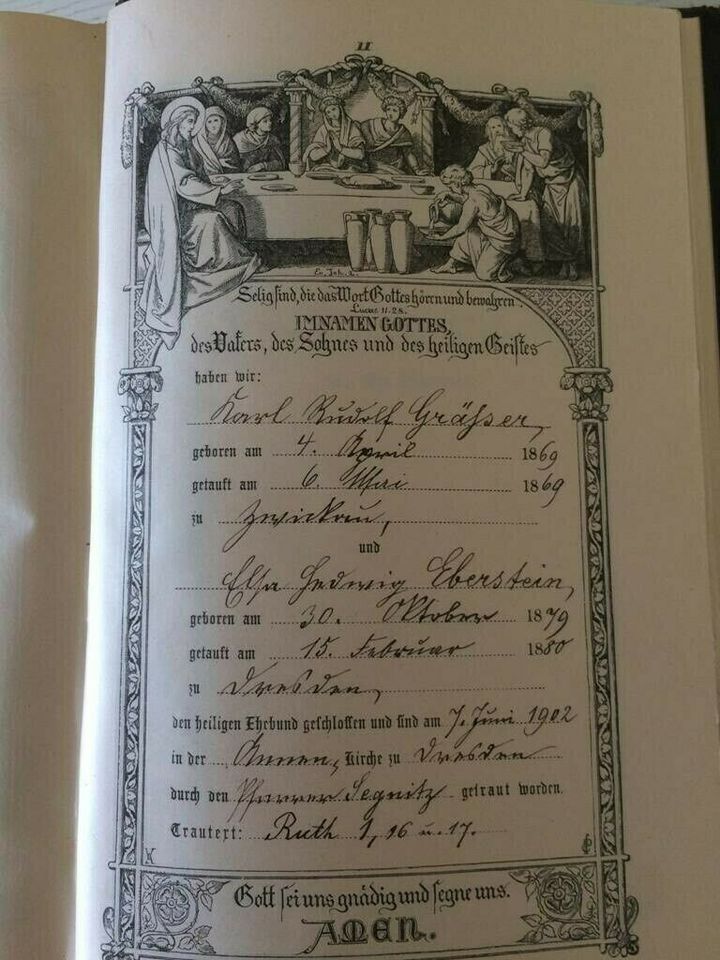 II
Ev. Joh. 2.
Selig sind, die das Wort Gottes hören und bewahren.
Lucae 11.28.
IM NAMEN GOTTES,
des Vaters, des Sohnes und des heiligen Geistes
haben wir:
Karl Rudolf Gräßer,
geboren am 4. April 1869
getauft am 6. Mai 1869
zu Zwickau,
und
Elsa Hedwig Eberstein,
geboren am 30. Oktober 1879
getauft am 15. Februar 1880
zu Dresden,
den heiligen Ehebund geschlossen und sind am 7. Juni 1902
in der Annen, Kirche zu Dresden
durch den Pfarrer Segnitz getraut worden.
Trautext: Ruth 1, 16 u. 17.
Gott sei uns gnädig und segne uns.
AMEN.